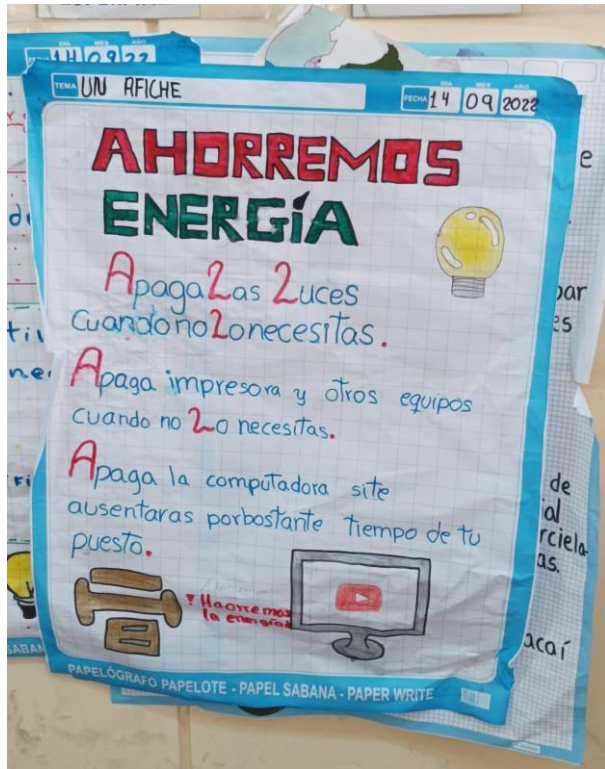 14 09 22
TEMA UN AFICHE
FECHA DIA MES AÑO 14 09 2022
AHORREMOS
ENERGÍA
Apaga Las Luces
Cuando no Lo necesitas.
Apaga impresora y otros equipos
cuando no Lo necesitas.
Apaga la computadora site
ausentaras porbastante tiempo de tu
puesto.
Haorremos
la energía
PAPELÓGRAFO PAPELOTE - PAPEL SABANA - PAPER WRITE
de
ial
rciela
as.
acaí